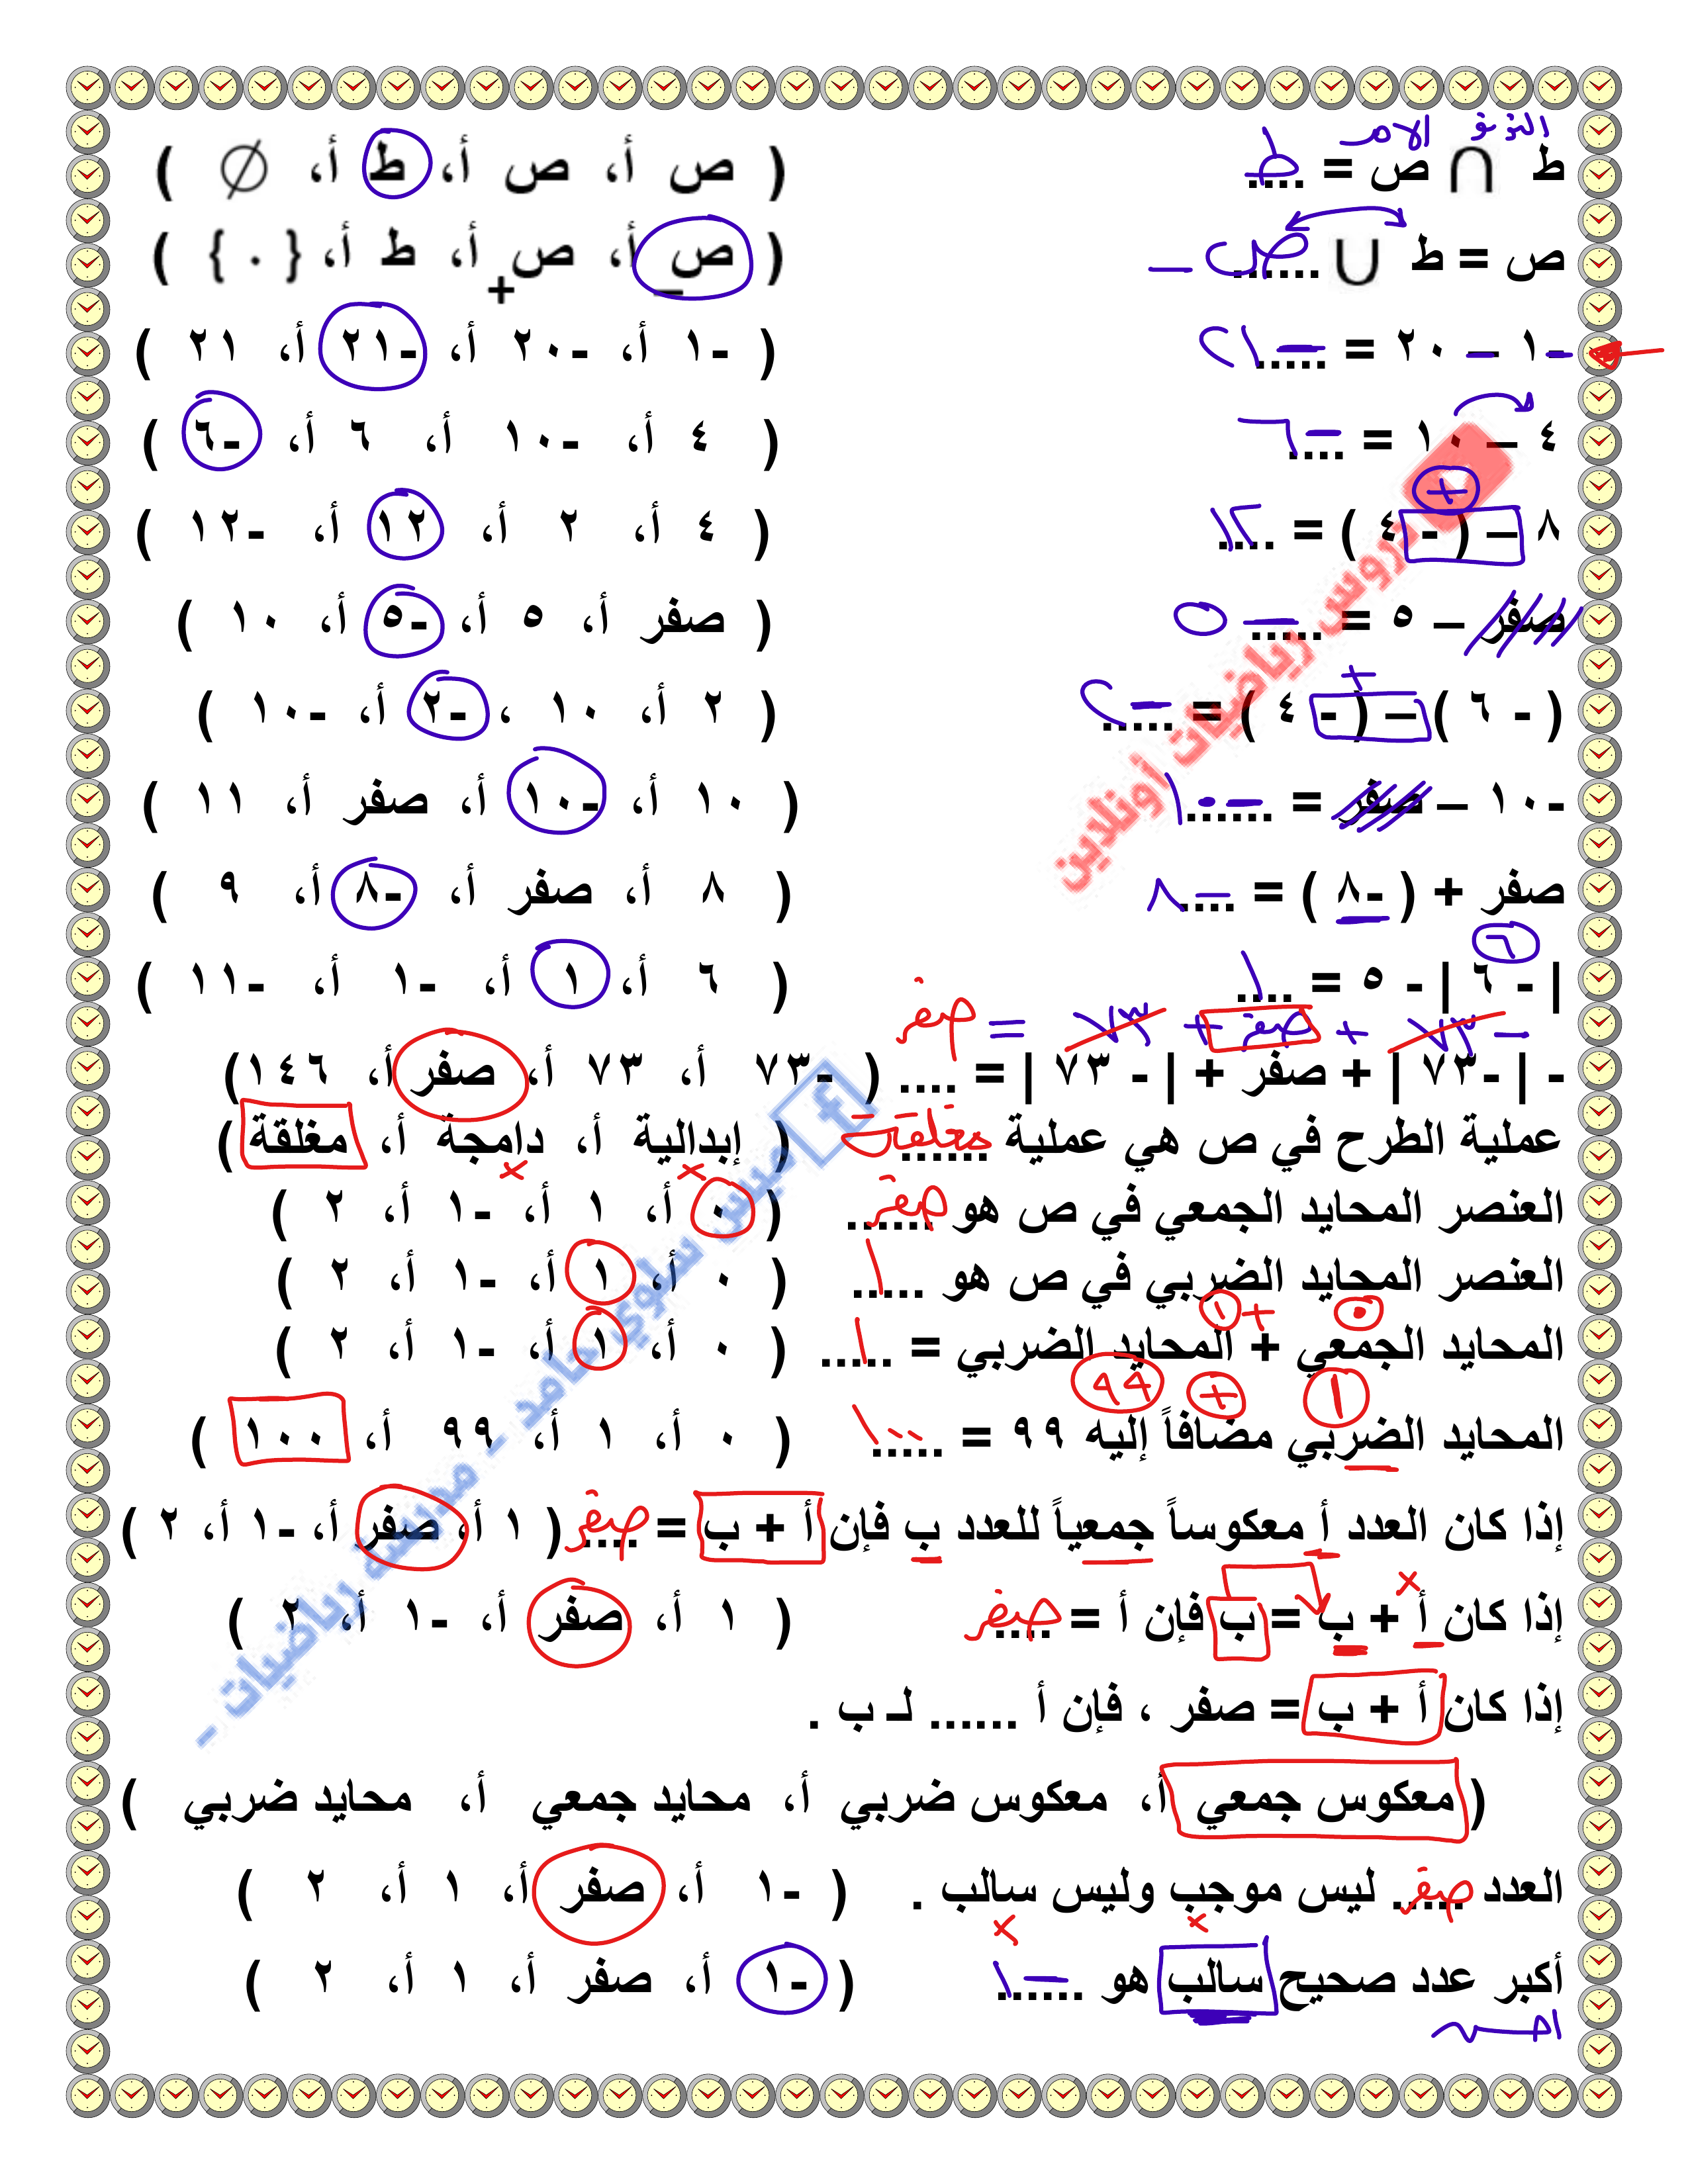 ط ∩ ص = .... ط ( ص₋ أ، ص أ، ط أ، ∅ )
ص = ط ∪ ...... ص₋ ( ص₋ أ، ص₊ أ، ط أ، { ٠ } )
-١ – ٢٠ = ..... -٢١ ( -١ أ، -٢٠ أ، -٢١ أ، ٢١ )
٤ – ١٠ = .... -٦ ( ٤ أ، -١٠ أ، ٦ أ، -٦ )
+
٨ – ( - ٤ ) = .... ١٢ ( ٤ أ، ٢ أ، ١٢ أ، -١٢ )
صفر – ٥ = ..... -٥ ( صفر أ، ٥ أ، -٥ أ، ١٠ )
+
( - ٦ ) – ( - ٤ ) = ..... -٢ ( ٢ أ، ١٠ ، -٢ أ، -١٠ )
-١٠ – صفر = ...... -١٠ ( ١٠ أ، -١٠ أ، صفر أ، ١١ )
صفر + ( -٨ ) = .... -٨ ( ٨ أ، صفر أ، -٨ أ، ٩ )
٦
| - ٦ | - ٥ = .... ١ ( ٦ أ، ١ أ، -١ أ، -١١ )
- ٧٣ + صفر + ٧٣ = صفر
- | -٧٣ | + صفر + | - ٧٣ | = .... ( -٧٣ أ، ٧٣ أ، صفر أ، ١٤٦ )
عملية الطرح في ص هي عملية ...... مغلقة ( إبدالية أ، دامجة أ، مغلقة )
العنصر المحايد الجمعي في ص هو ...... صفر ( ٠ أ، ١ أ، -١ أ، ٢ )
العنصر المحايد الضربي في ص هو ..... ١ ( ٠ أ، ١ أ، -١ أ، ٢ )
٠ + ١
المحايد الجمعي + المحايد الضربي = ..... ١ ( ٠ أ، ١ أ، -١ أ، ٢ )
١ + ٩٩
المحايد الضربي مضافاً إليه ٩٩ = ..... ١٠٠ ( ٠ أ، ١ أ، ٩٩ أ، ١٠٠ )
إذا كان العدد أ معكوساً جمعياً للعدد ب فإن أ + ب = .... صفر ( ١ أ، صفر أ، -١ أ، ٢ )
إذا كان أ + ب = ب فإن أ = .... صفر ( ١ أ، صفر أ، -١ أ، ٢ )
إذا كان أ + ب = صفر ، فإن أ ...... لـ ب .
( معكوس جمعي أ، معكوس ضربي أ، محايد جمعي أ، محايد ضربي )
العدد ..... صفر ليس موجب وليس سالب . ( -١ أ، صفر أ، ١ أ، ٢ )
أكبر عدد صحيح سالب هو ...... -١ ( -١ أ، صفر أ، ١ أ، ٢ )
دروس رياضيات أونلاين
ميس سلوي حامد - مدرسة رياضيات -